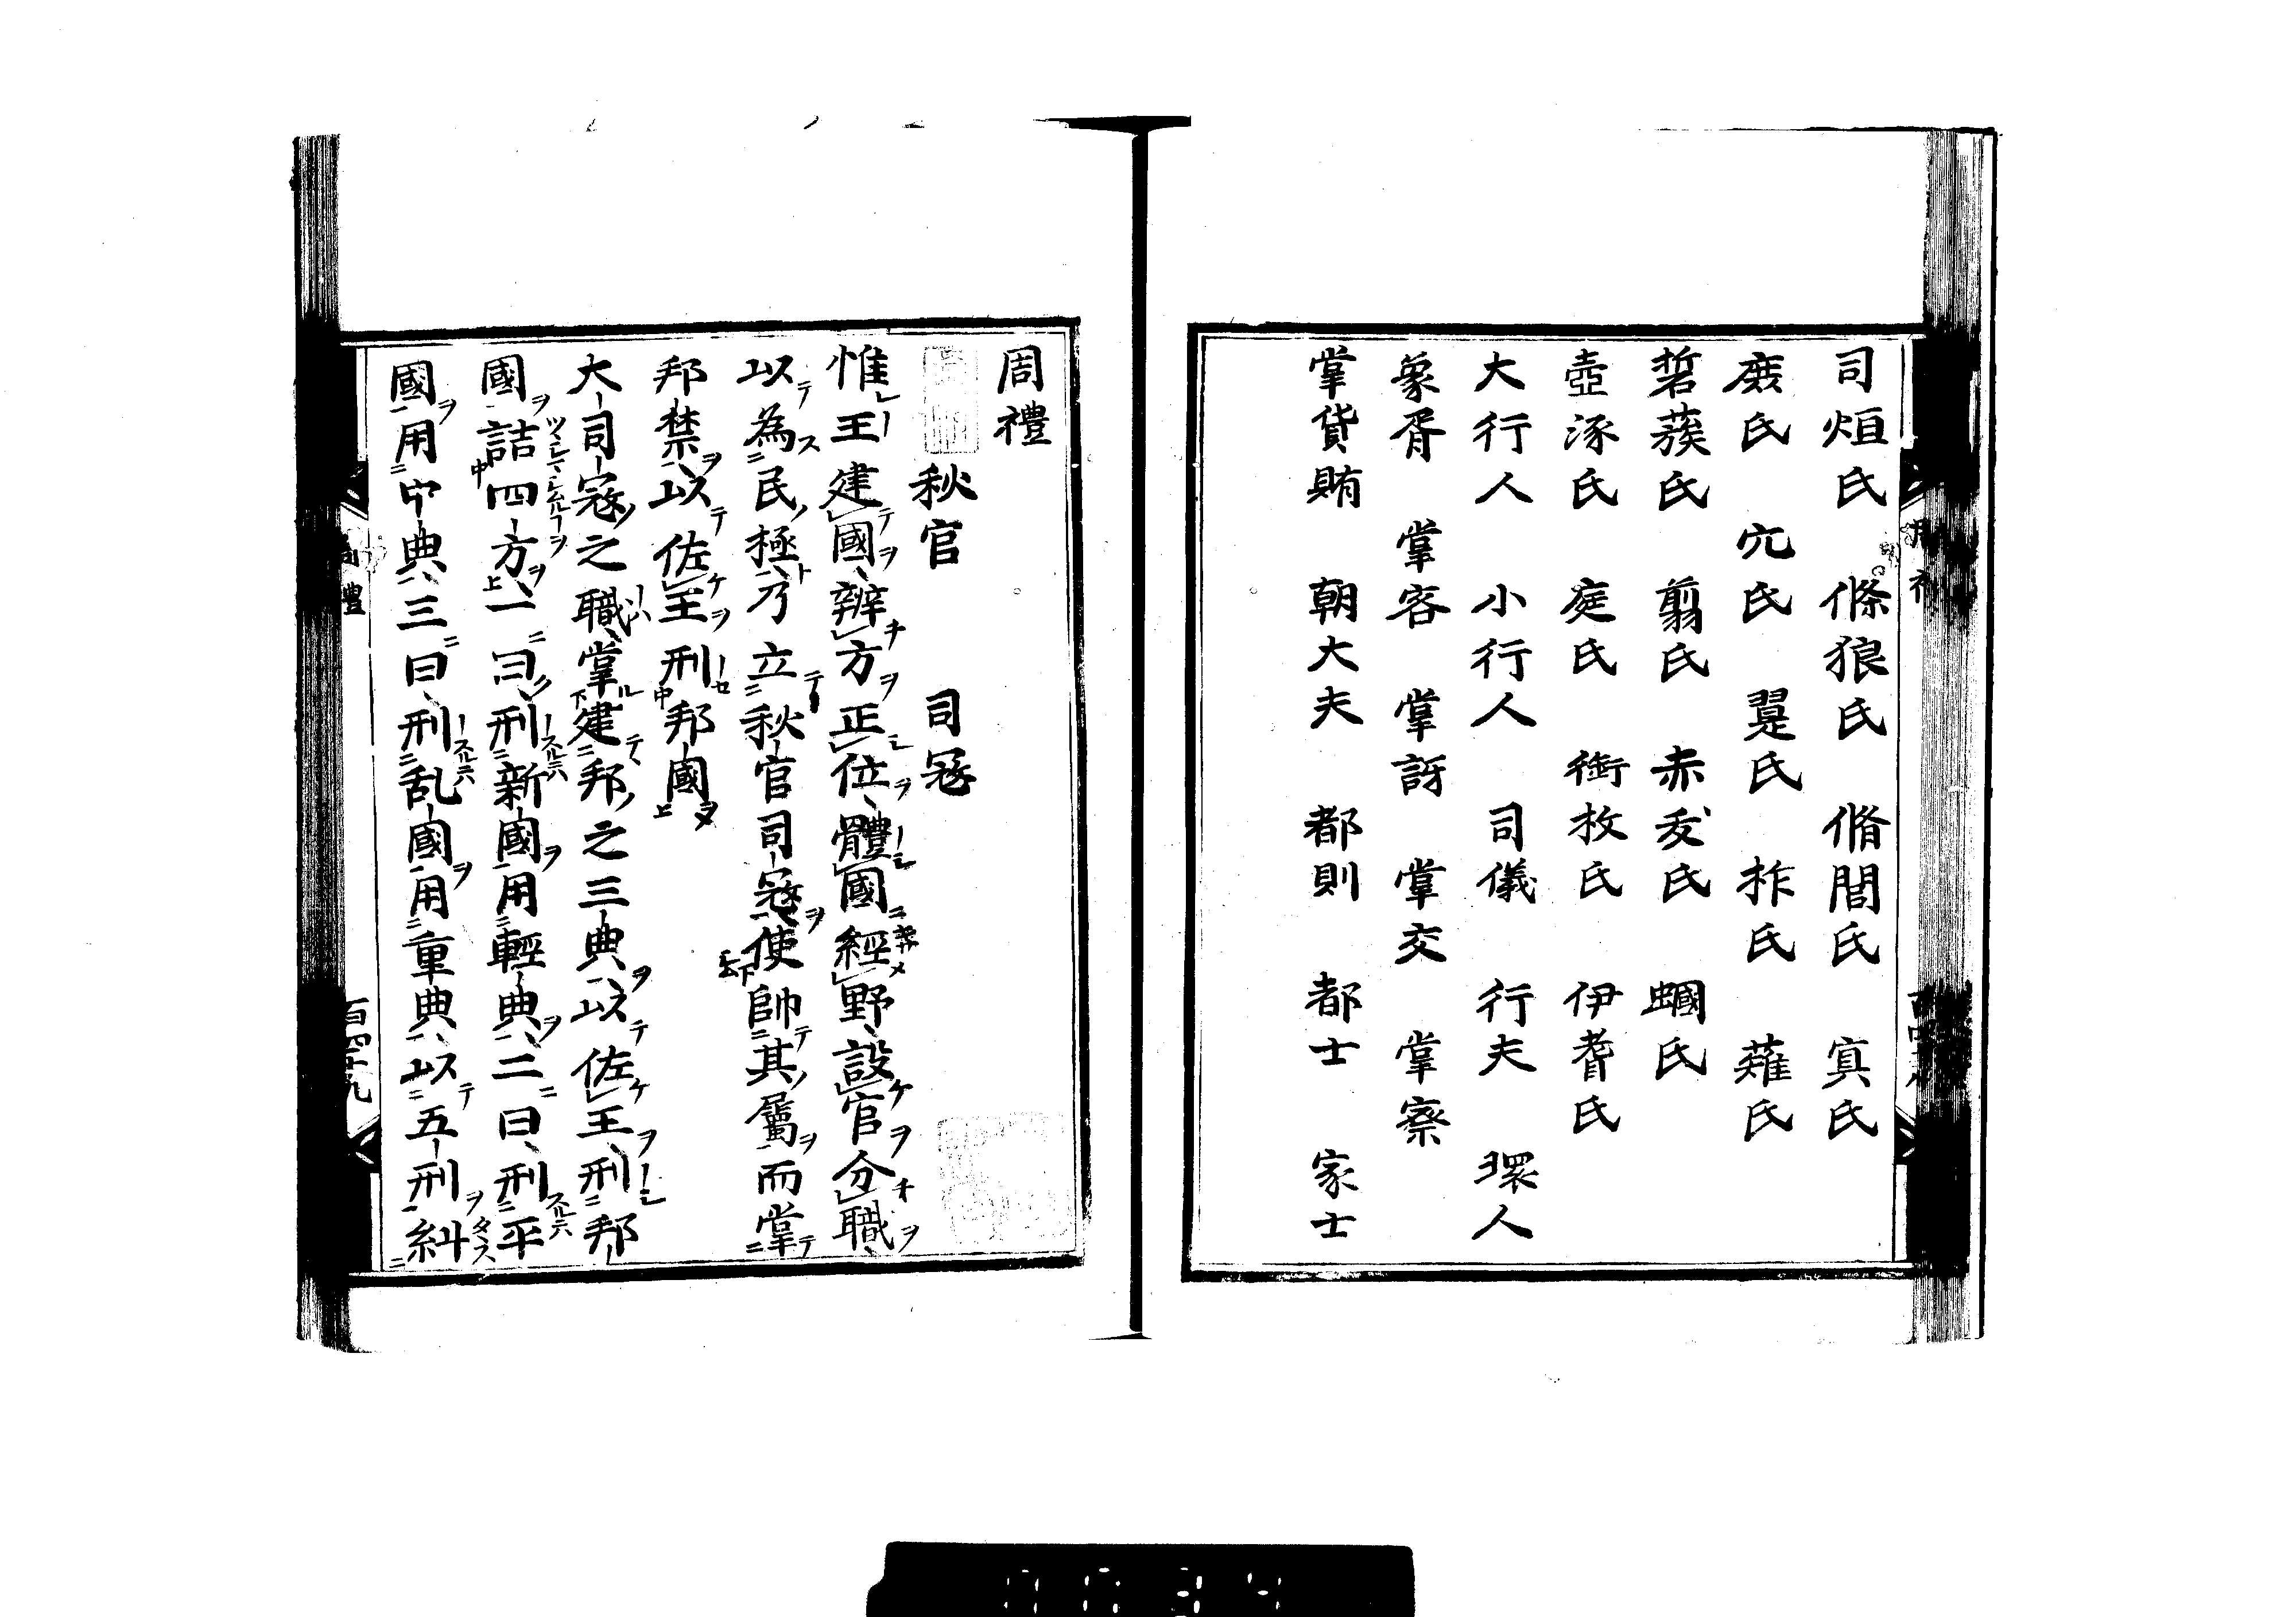 司烜氏　條狼氏　脩閭氏　冥氏
庶氏　穴氏　翨氏　柞氏　薙氏
硩蔟氏　翦氏　赤犮氏　蟈氏
壺涿氏　庭氏　銜枚氏　伊耆氏
大行人　小行人　司儀　行夫　環人
象胥　掌客　掌訝　掌交　掌察
掌貨賄　朝大夫　都則　都士　家士
周禮
秋官　司寇
惟王建國、辨方正位、體國經野、設官分職、
以為民極、乃立秋官司寇、使帥其屬而掌
邦禁、以佐王刑邦國
大司寇之職、掌建邦之三典、以佐王刑邦
國、詰四方、一曰、刑新國用輕典、二曰、刑平
國用中典、三曰、刑乱國用重典、以五刑糾
周禮
百四十九